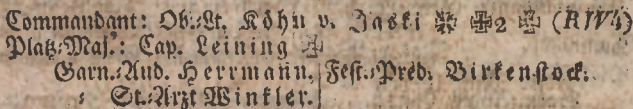 Commandant: Ob.-Lt. Köhn v. Jaski ✠2 (RW4)
Platz-Maj.: Cap. Leining
Garn.-Aud. Herrmann. Fest.-Pred. Birkenstock.
- St.-Arzt Winkler.